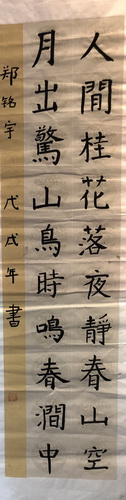 人間桂花落夜靜春山空
月出驚山鳥時鳴春澗中
戊戌年 鄭銘宇 書